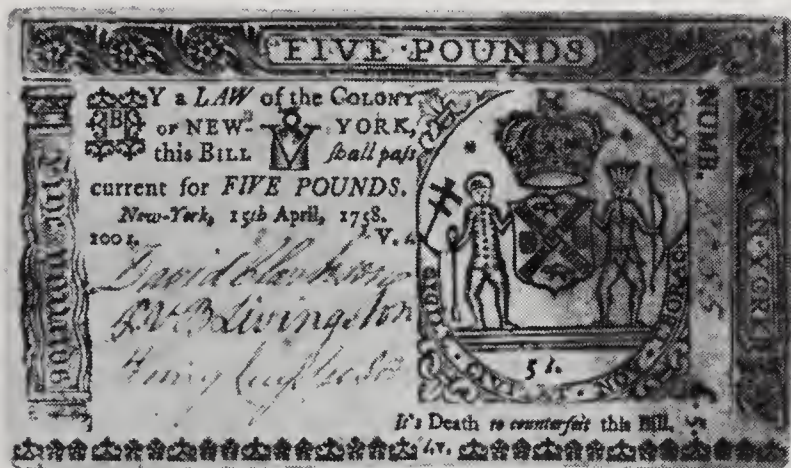 FIVE·POUNDS
BY a LAW of the COLONY
of NEW- YORK,
this BILL V shall pass
current for FIVE POUNDS.
New-York, 15th April, 1758.
100 s. V.
David Clarkson
Livingston
Henry
NUMB.
N·YORK
CIVITAT · NOV
5 l.
It's Death to counterfeit this Bill.
l.v.